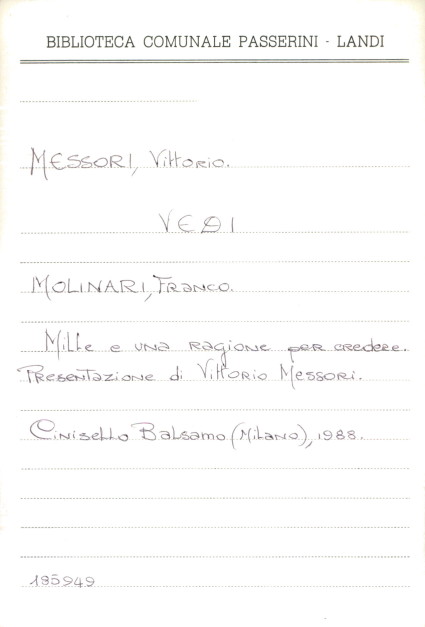 BIBLIOTECA COMUNALE PASSERINI - LANDI
MESSORI, Vittorio.
VEDI
MOLINARI, Franco.
Mille e una ragione per credere.
Presentazione di Vittorio Messori.
Cinisello Balsamo (Milano), 1988.
185949